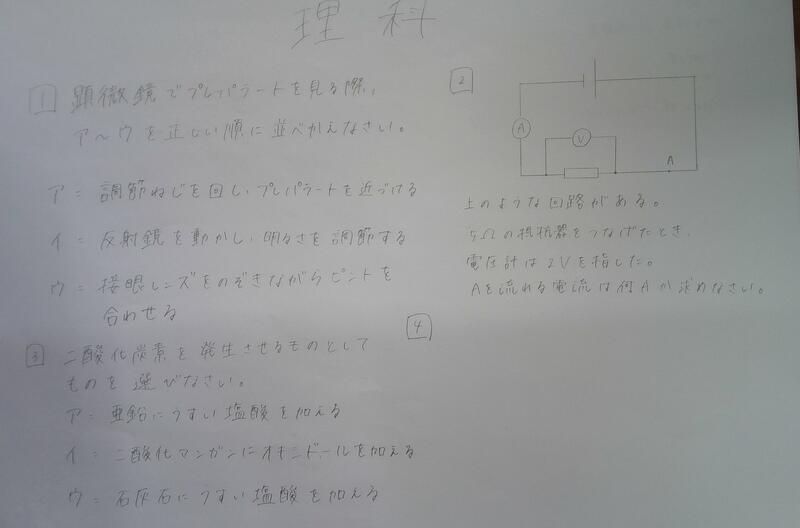 理科
1 顕微鏡でプレパラートを見る際、
ア〜ウを正しい順に並べかえなさい。
ア = 調節ねじを回し、プレパラートを近づける
イ = 反射鏡を動かし、明るさを調節する
ウ = 接眼レンズをのぞきながらピントを
合わせる
2
A
V
A
上のような回路がある。
5Ωの抵抗器をつなげたとき、
電圧計は2Vを指した。
Aを流れる電流は何Aか求めなさい。
3 二酸化炭素を発生させるものとして
ものを選びなさい。
ア = 亜鉛にうすい塩酸を加える
イ = 二酸化マンガンにオキシドールを加える
ウ = 石灰石にうすい塩酸を加える
4